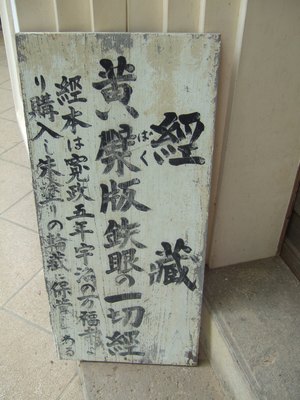 經蔵
黄檗版鉄眼の一切経
ばく
経本は寛政五年宇治の万福寺よ
り購入し朱塗りの輪蔵に保管してある